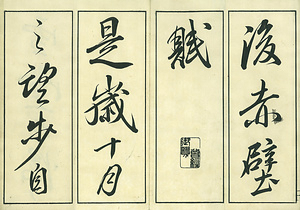 後赤壁
賦
是歲十月
之望步自